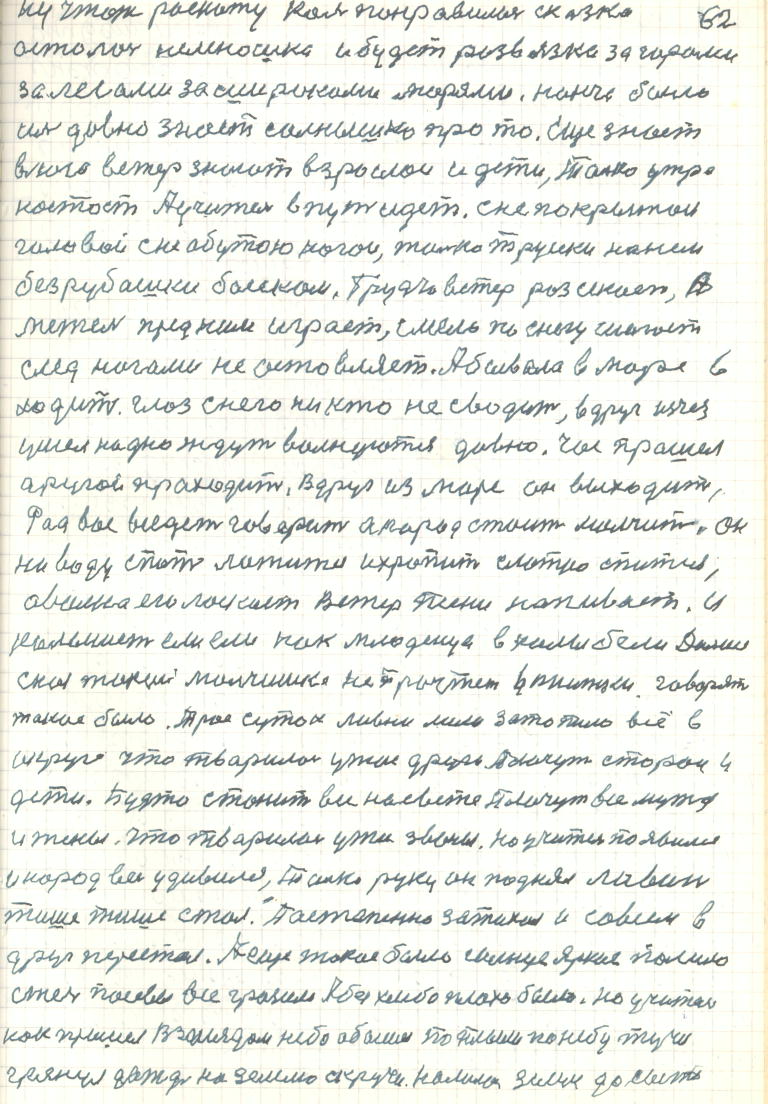 ну чтож раскажу коя понравилоя сказка 62
осталоя немношка и будет розвязка за горами
за лесами за широкоми морями. нанче было
ил довно знает солнышко про то. Еще знает
ветер знают взрослои и дети, Толко утро
настоет Аучител впут идет. с не покрытой
головой с не абутою ногой, толко трусики на нем
без рубашки босеком. Грудю ветер розсекает, А
метел пред ним играет, смело по снегу шагает
след ногами не оставляет. А бывала в море в
ходит. глоз с него никто не сводит, вдруг изчез
ушел на дно ждут волнуются довно. Час прашел
другой праходит. Вдруг из море он выходит,
Рад вас видет говорит а народ стоит молчит. он
на воду спат ложитса и храпит сладко спится,
а волна его ласкает Ветер песни напивает. И
колышет ели ели как младенца в калыбели Далше
скол такой малчишка не прочтет в книжки. говорят
такое было. Трое суток ливни лили затопило всё в
округе что тварилоя ужас други Плачут стороя и
дети. Будто стонит все на свете Плачут все мужя
и жены. Что тварилоя ужа звоны. Но учител появился
и народ вес удивился, Толко руку он поднял ливин
тише тише стал. Постепенно затихал и совсем в
друг перестал. А еще такое было солнце яркое полило
степ посевы все грозил Абез хлеба плохо было. Но учител
как пришел Взглядом небо обошел Поплыли по небу тучи
грянул дожд на землю с кручи. Налилоя земля до